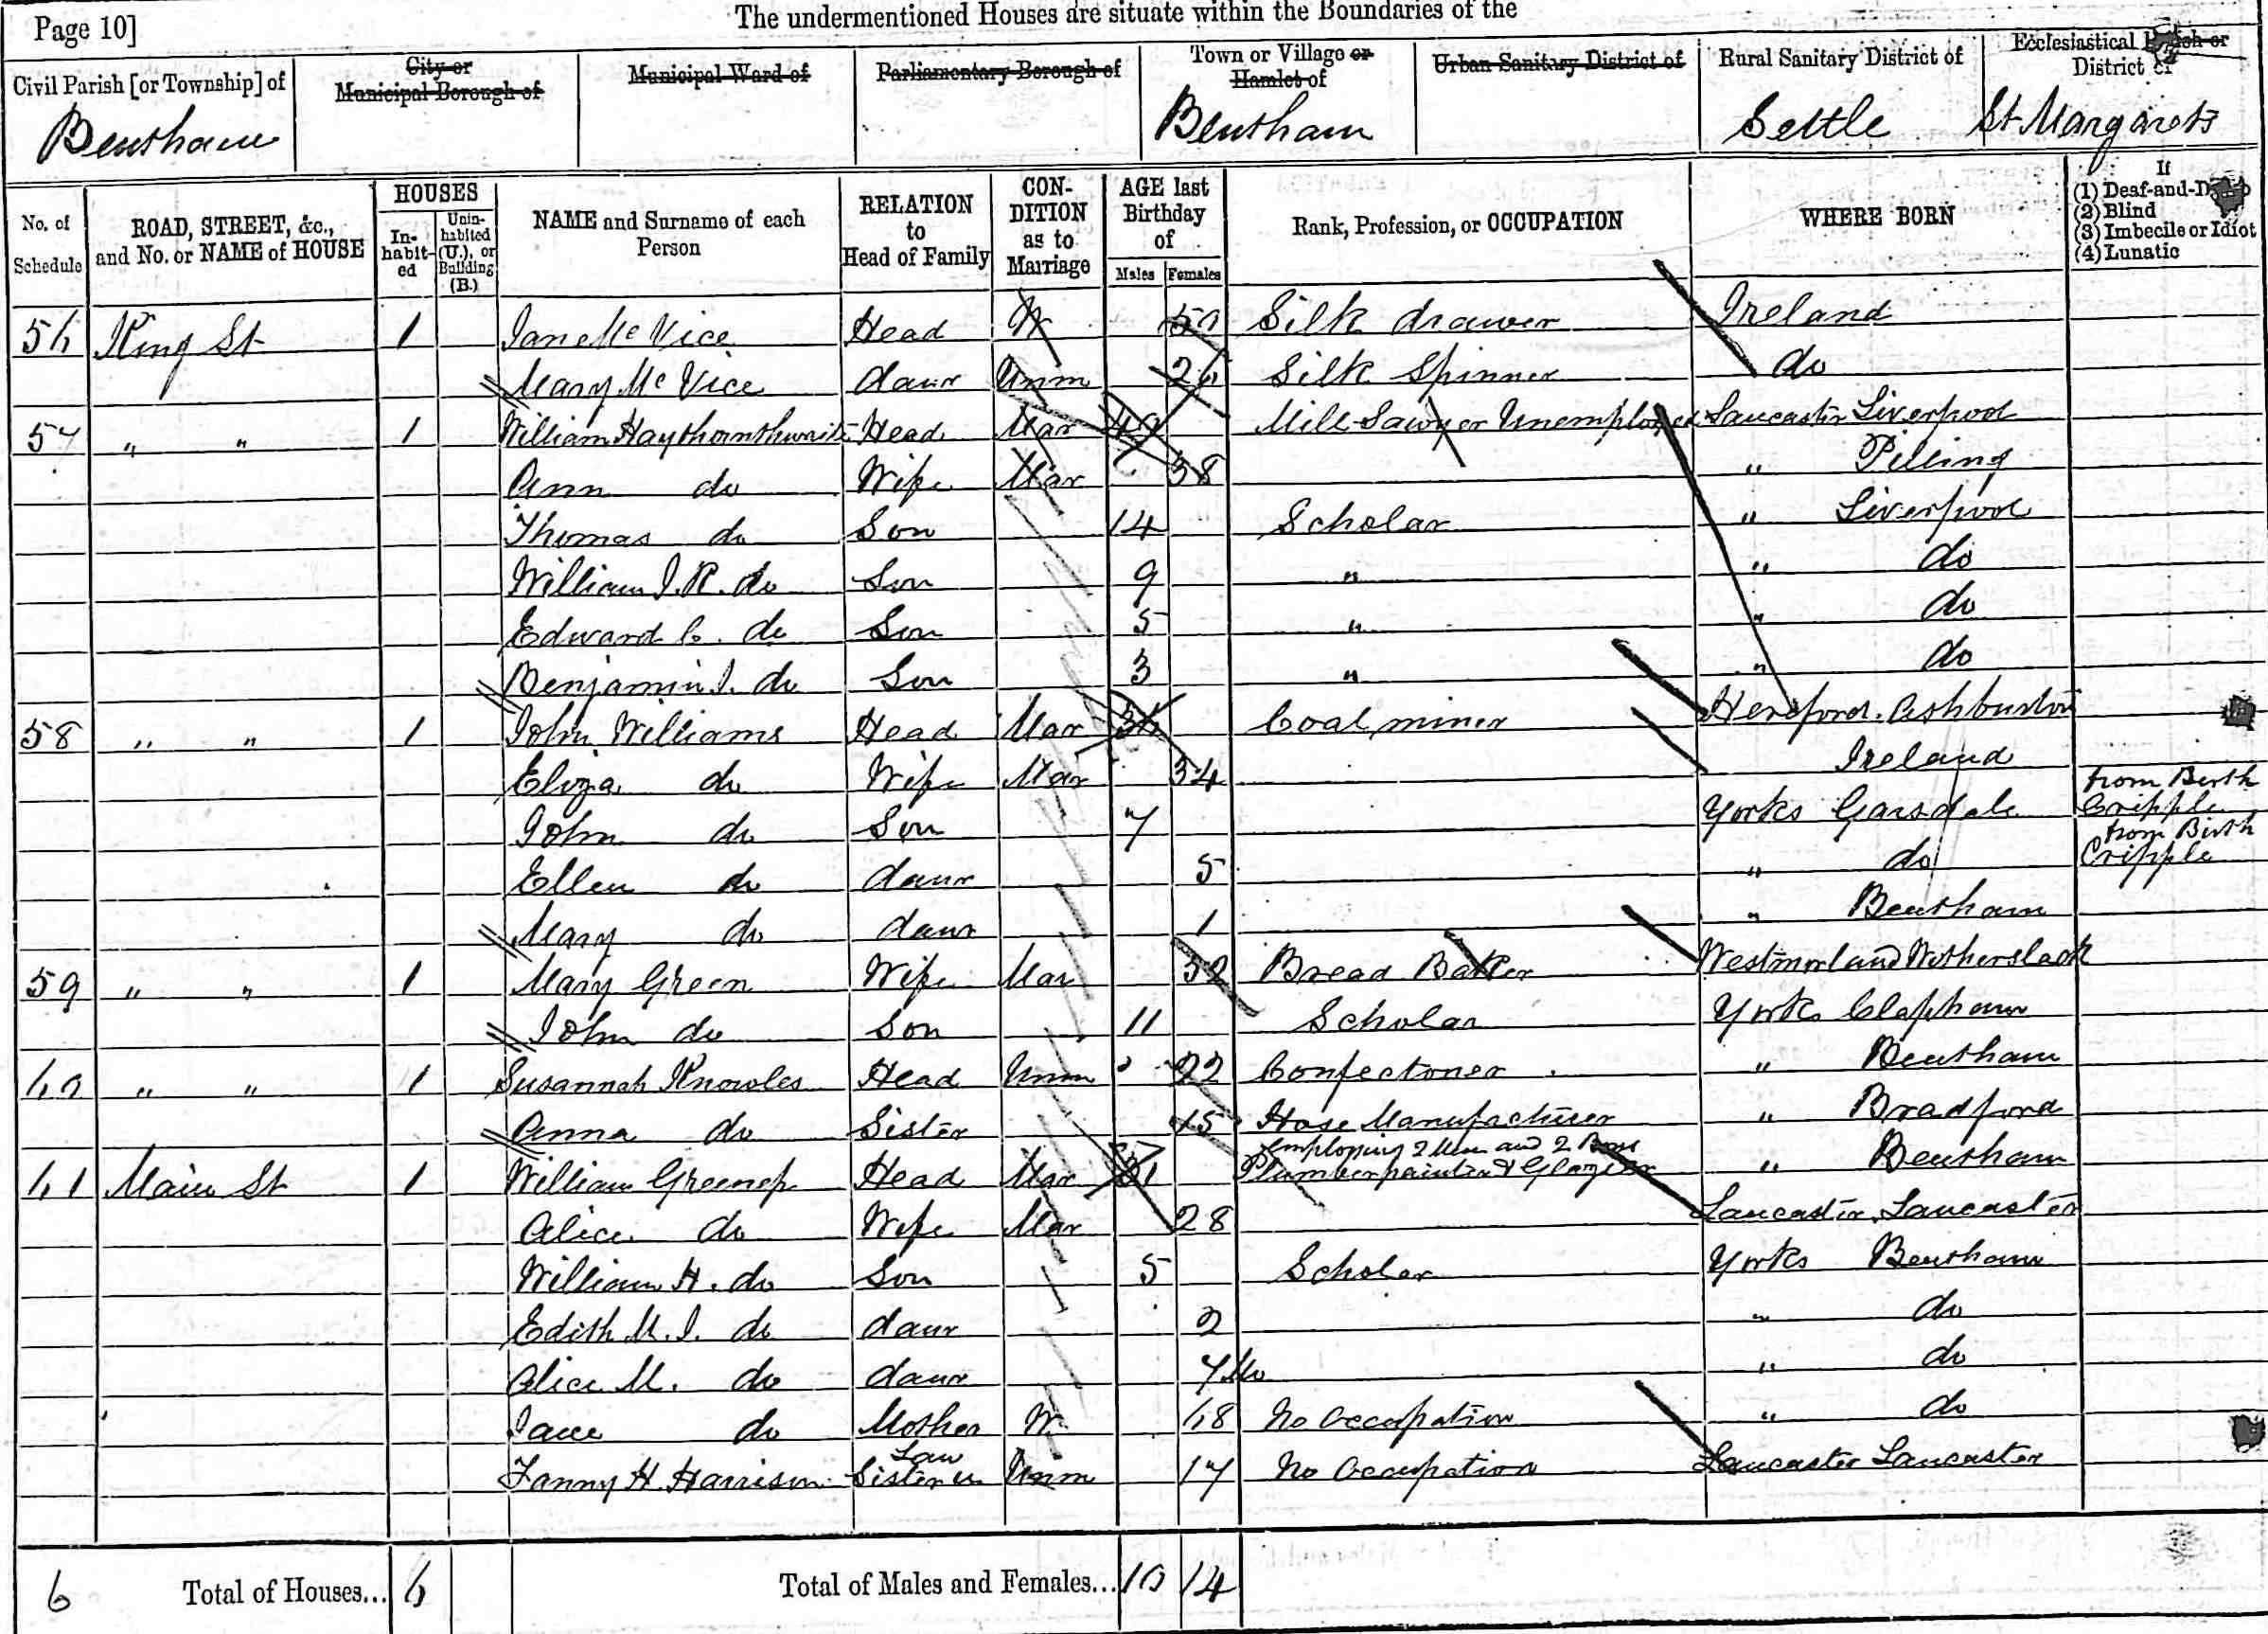 Page 10]
The undermentioned Houses are situate within the Boundaries of the
Civil Parish [or Township] of
City or Municipal Borough of
Municipal Ward of
Parliamentary Borough of
Town or Village or Hamlet of
Urban Sanitary District of
Rural Sanitary District of
Ecclesiastical Parish or District of
Bentham Bentham Settle St Margarets
No. of Schedule
ROAD, STREET, &c., and No. or NAME of HOUSE
HOUSES
In-habit-ed
Unin-habited (U.), or Building (B.)
NAME and Surname of each Person
RELATION to Head of Family
CON-DITION as to Marriage
AGE last Birthday of
Males Females
Rank, Profession, or OCCUPATION
WHERE BORN
If
(1) Deaf-and-Dumb
(2) Blind
(3) Imbecile or Idiot
(4) Lunatic
56 King St 1 Jane Mc Vice Head W 50 Silk drawer Ireland
Mary Mc Vice daur Unm 26 Silk Spinner do
57 " " 1 William Haythornthwaite Head Mar 49 Mill Sawyer Unemployed Lancaster Liverpool
Ann do Wife Mar 38 " Pilling
Thomas do Son 14 Scholar " Liverpool
William J. R. do Son 9 " " do
Edward C. do Son 5 " " do
Benjamin J. do Son 3 " " do
58 " " 1 John Williams Head Mar 36 Coal miner Hereford. Ashburton
Eliza do Wife Mar 34 Ireland
John do Son 7 Yorks Garsdale from Birth Cripple
Ellen do daur 5 " do from Birth Cripple
Mary do daur 1 " Bentham
59 " " 1 Mary Green Wife Mar 52 Bread Baker Westmorland Witherslack
John do Son 11 Scholar York Clapham
60 " " 1 Susannah Knowles Head Unm 22 Confectoner " Bentham
Anna do Sister 15 Hose Manufacturer " Bradford
61 Main St 1 William Greenep Head Mar 31 Plumber painter & Glazier Employing 2 Men and 2 Boys " Bentham
Alice do Wife Mar 28 Lancaster, Lancaster
William H. do Son 5 Scholar Yorks Bentham
Edith M. J. do daur 2 " do
Alice M. do daur 7 Mo " do
Jane do Mother W 68 No Occupation " do
Fanny H. Harrison Sister in Law Unm 17 No Occupation Lancaster Lancaster
6 Total of Houses... 6 Total of Males and Females... 10 14